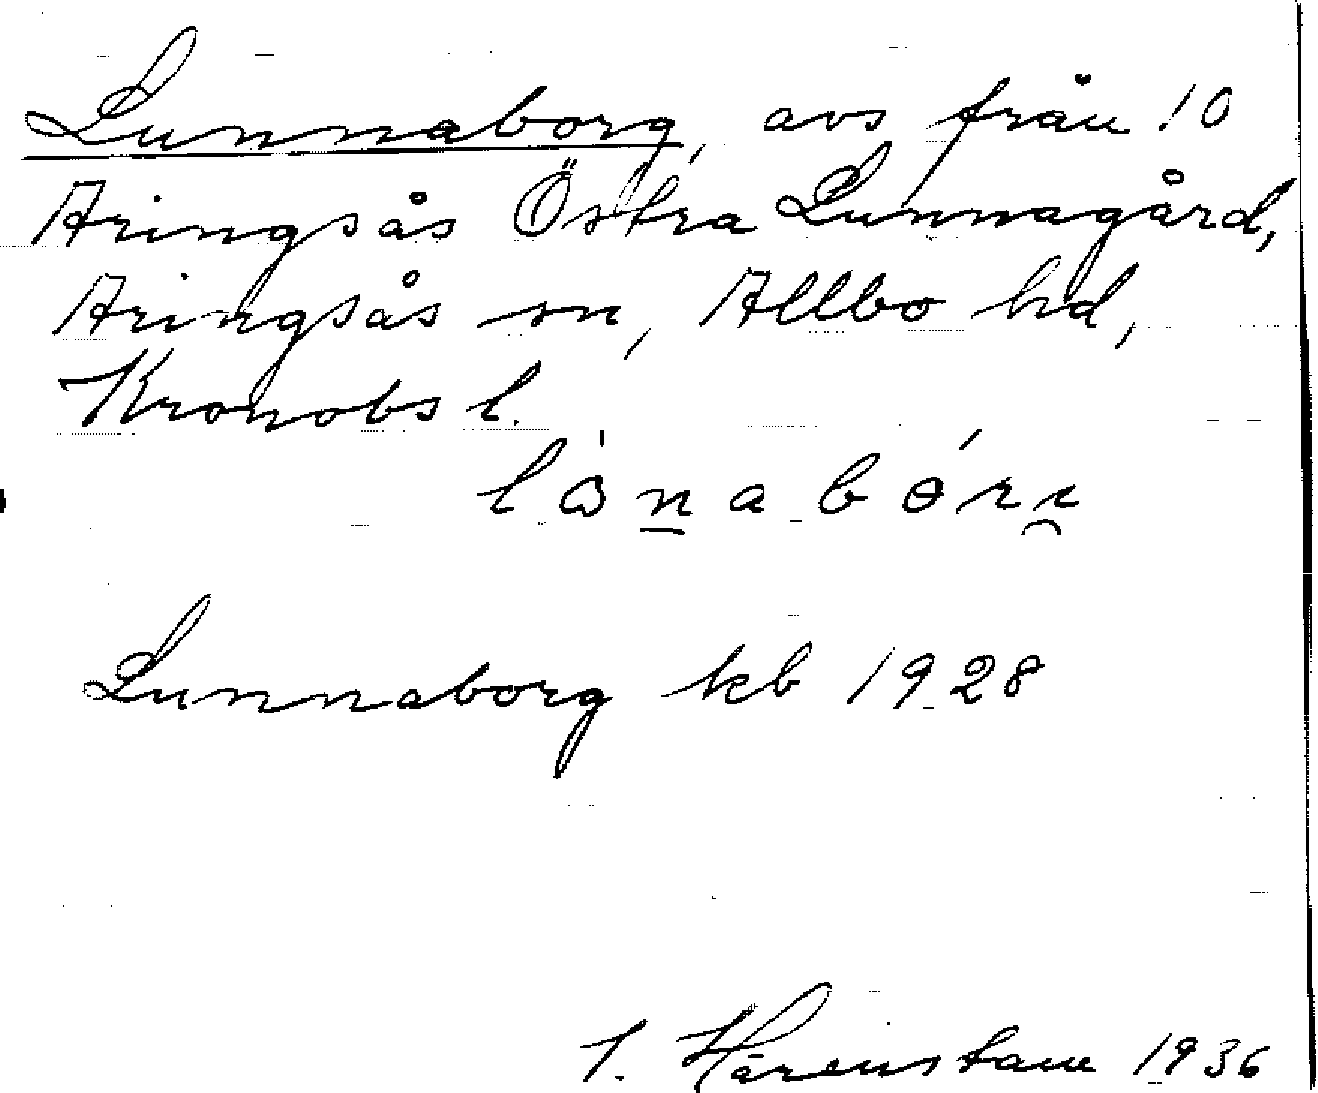 Lunnaborg, avs från 10
Aringsås Östra Lunnagård,
Aringsås sn, Allbo hd,
Kronobs l.
Lunnaborg kb 1928
1936